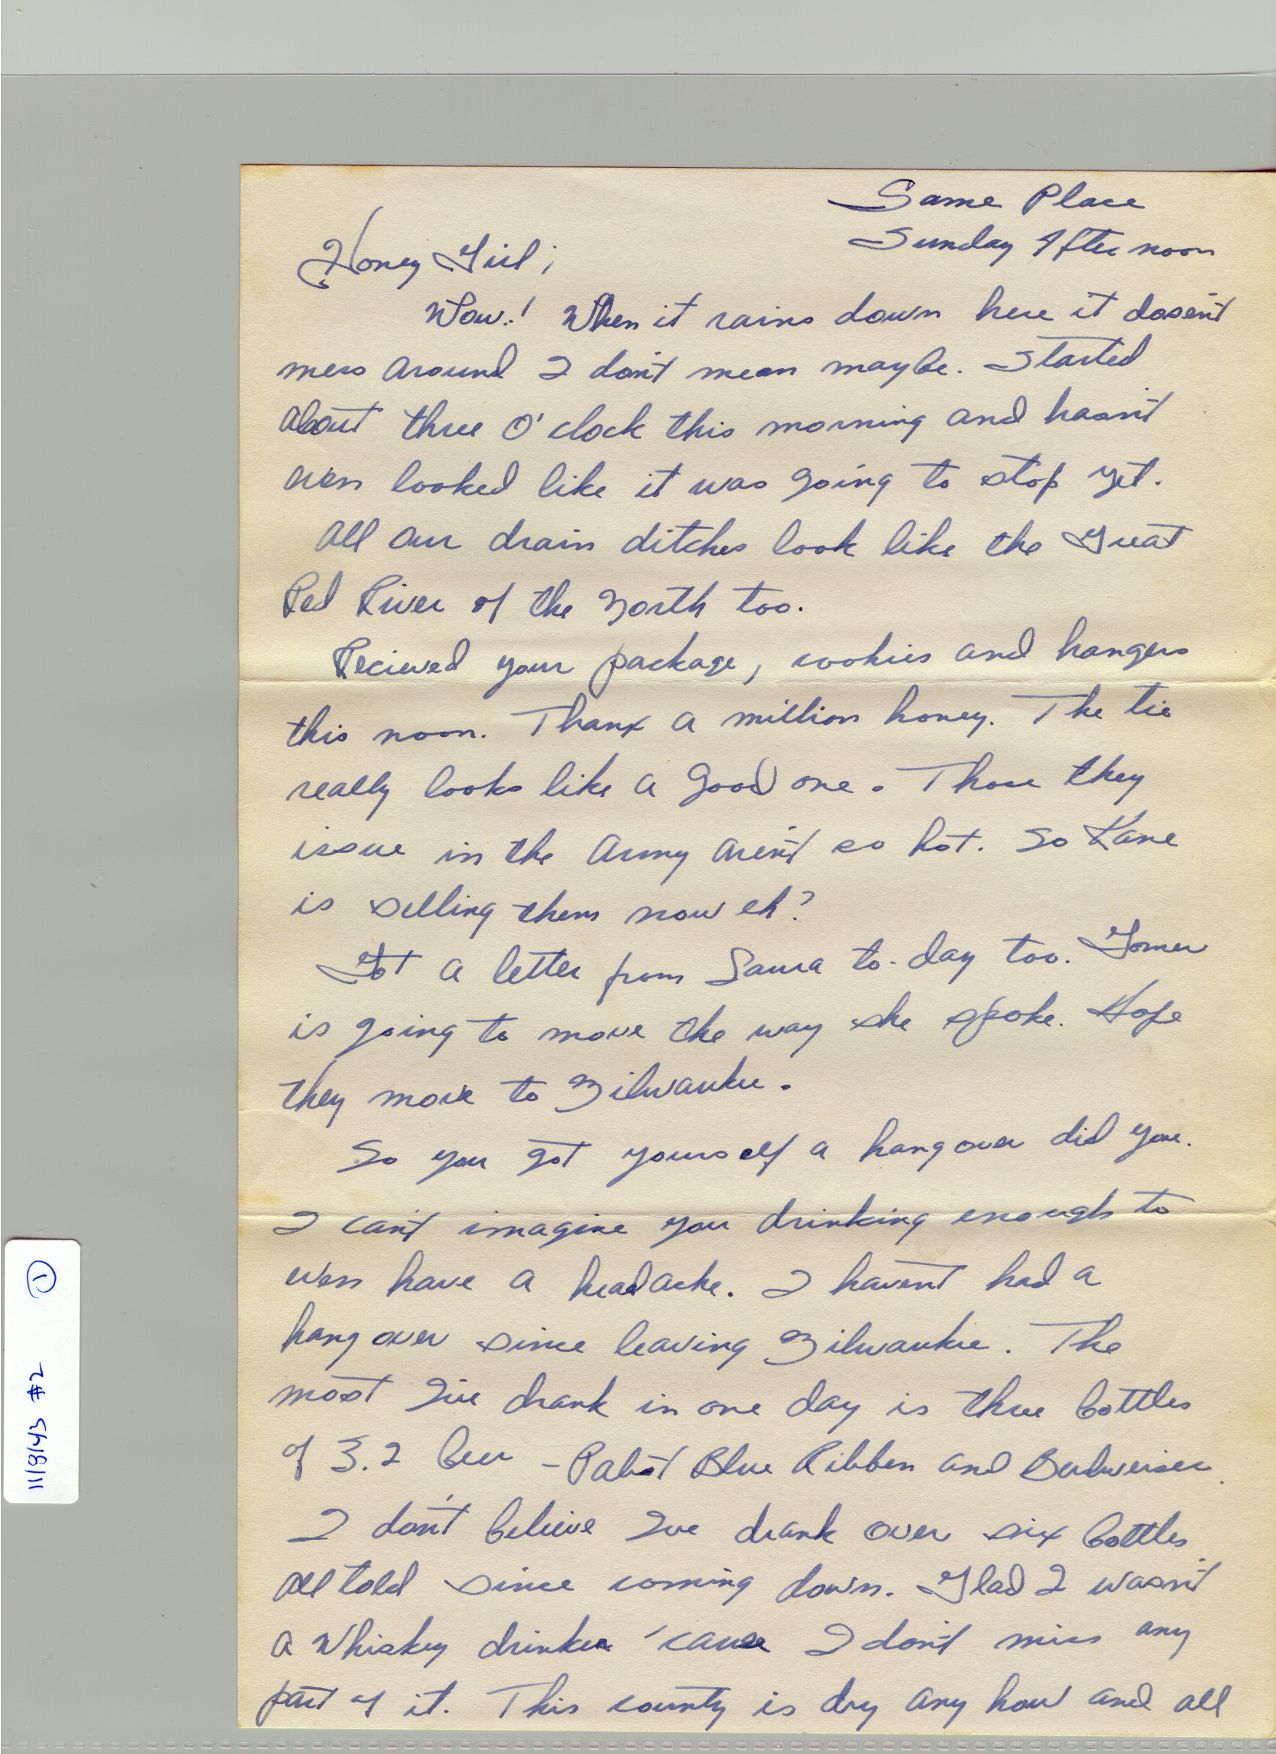 Same Place
Sunday Afternoon
Honey Girl;
Wow.! When it rains down here it dosen't
mess around I don't mean maybe. Started
about three O'clock this morning and hasn't
even looked like it was going to stop yet.
All our drain ditches look like the Great
Red River of the North too.
Recieved your package, cookies and hangers
this noon. Thanx a million honey. The tie
really looks like a good one. Those they
issue in the Army aren't so hot. So Kane
is selling them now eh?
Got a letter from Laura to-day too. Gomer
is going to move the way she spoke. Hope
they move to Milwaukee.
So you got yourself a hangover did you.
I can't imagine you drinking enough to
even have a headache. I haven't had a
hang over since leaving Milwaukie. The
most I've drank in one day is three bottles
of 3.2 beer - Pabst Blue Ribben and Budweiser.
I don't believe I've drank over six bottles
all told since coming down. Glad I wasn't
a whiskey drinker 'cause I don't miss any
part of it. This county is dry any how and all
① 11/8/45 #2